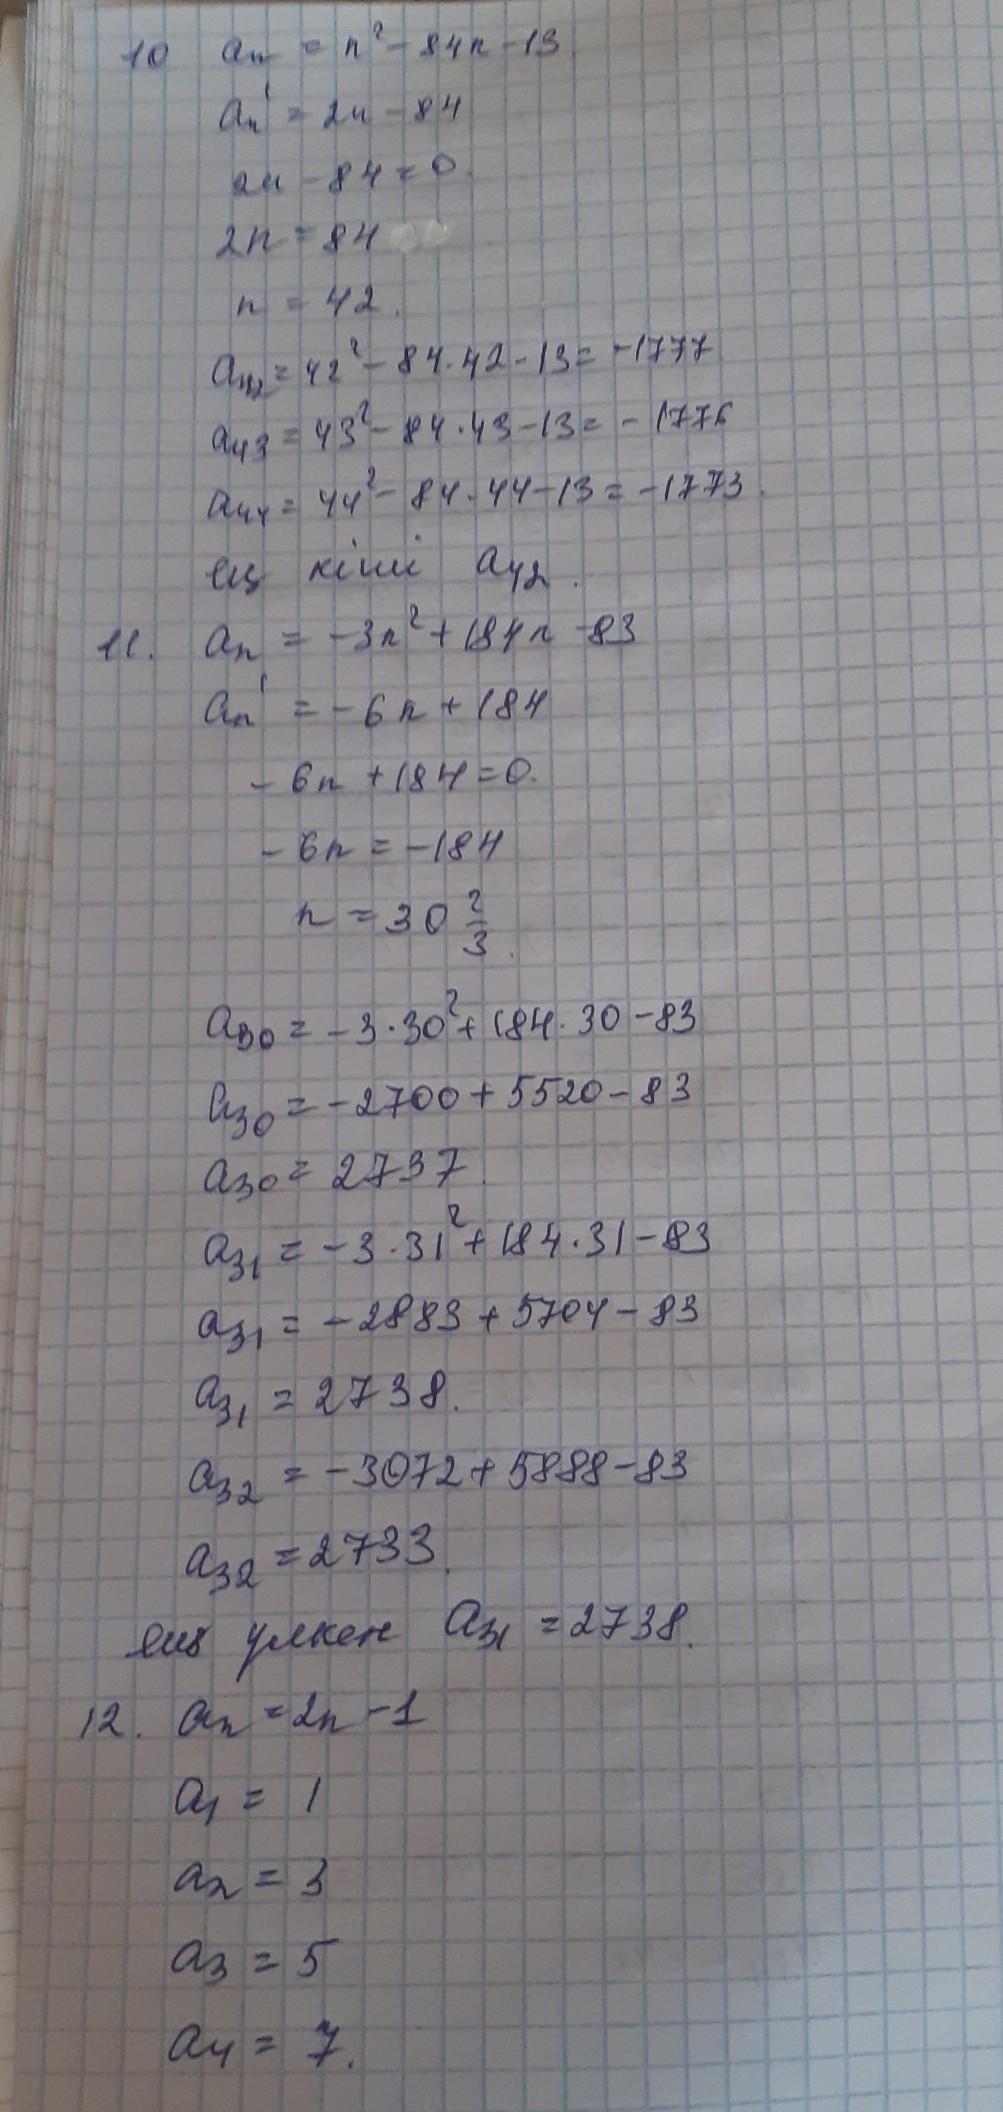 10 aₙ = n² - 84n - 13.
aₙ' = 2n - 84
2n - 84 = 0.
2n = 84
n = 42.
a₄₂ = 42² - 84·42 - 13 = -1777
a₄₃ = 43² - 84·43 - 13 = -1776
a₄₄ = 44² - 84·44 - 13 = -1773.
ең кіші a₄₂.
11. aₙ = -3n² + 184n - 83
aₙ' = -6n + 184
-6n + 184 = 0.
-6n = -184
n = 30 2/3.
a₃₀ = -3·30² + 184·30 - 83
a₃₀ = -2700 + 5520 - 83
a₃₀ = 2737.
a₃₁ = -3·31² + 184·31 - 83
a₃₁ = -2883 + 5704 - 83
a₃₁ = 2738.
a₃₂ = -3072 + 5888 - 83
a₃₂ = 2733.
ең үлкен a₃₁ = 2738.
12. aₙ = 2n - 1
a₁ = 1
a₂ = 3
a₃ = 5
a₄ = 7.